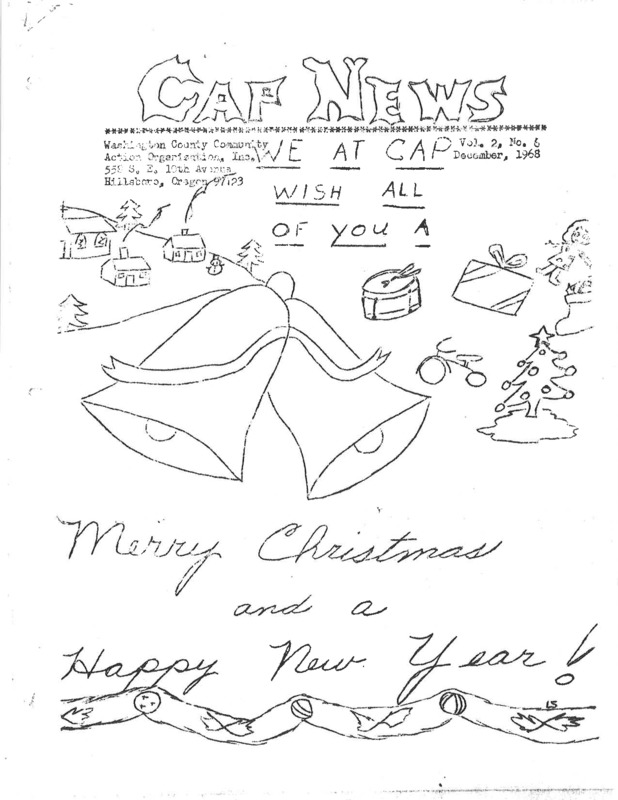 CAP NEWS
Washington County Community
Action Organization, Inc.
Hillsboro, Oregon 97123
Vol. 2, No. 6
December, 1968
WE AT CAP
WISH ALL
OF YOU A
Merry Christmas
and a
Happy New Year!
LS